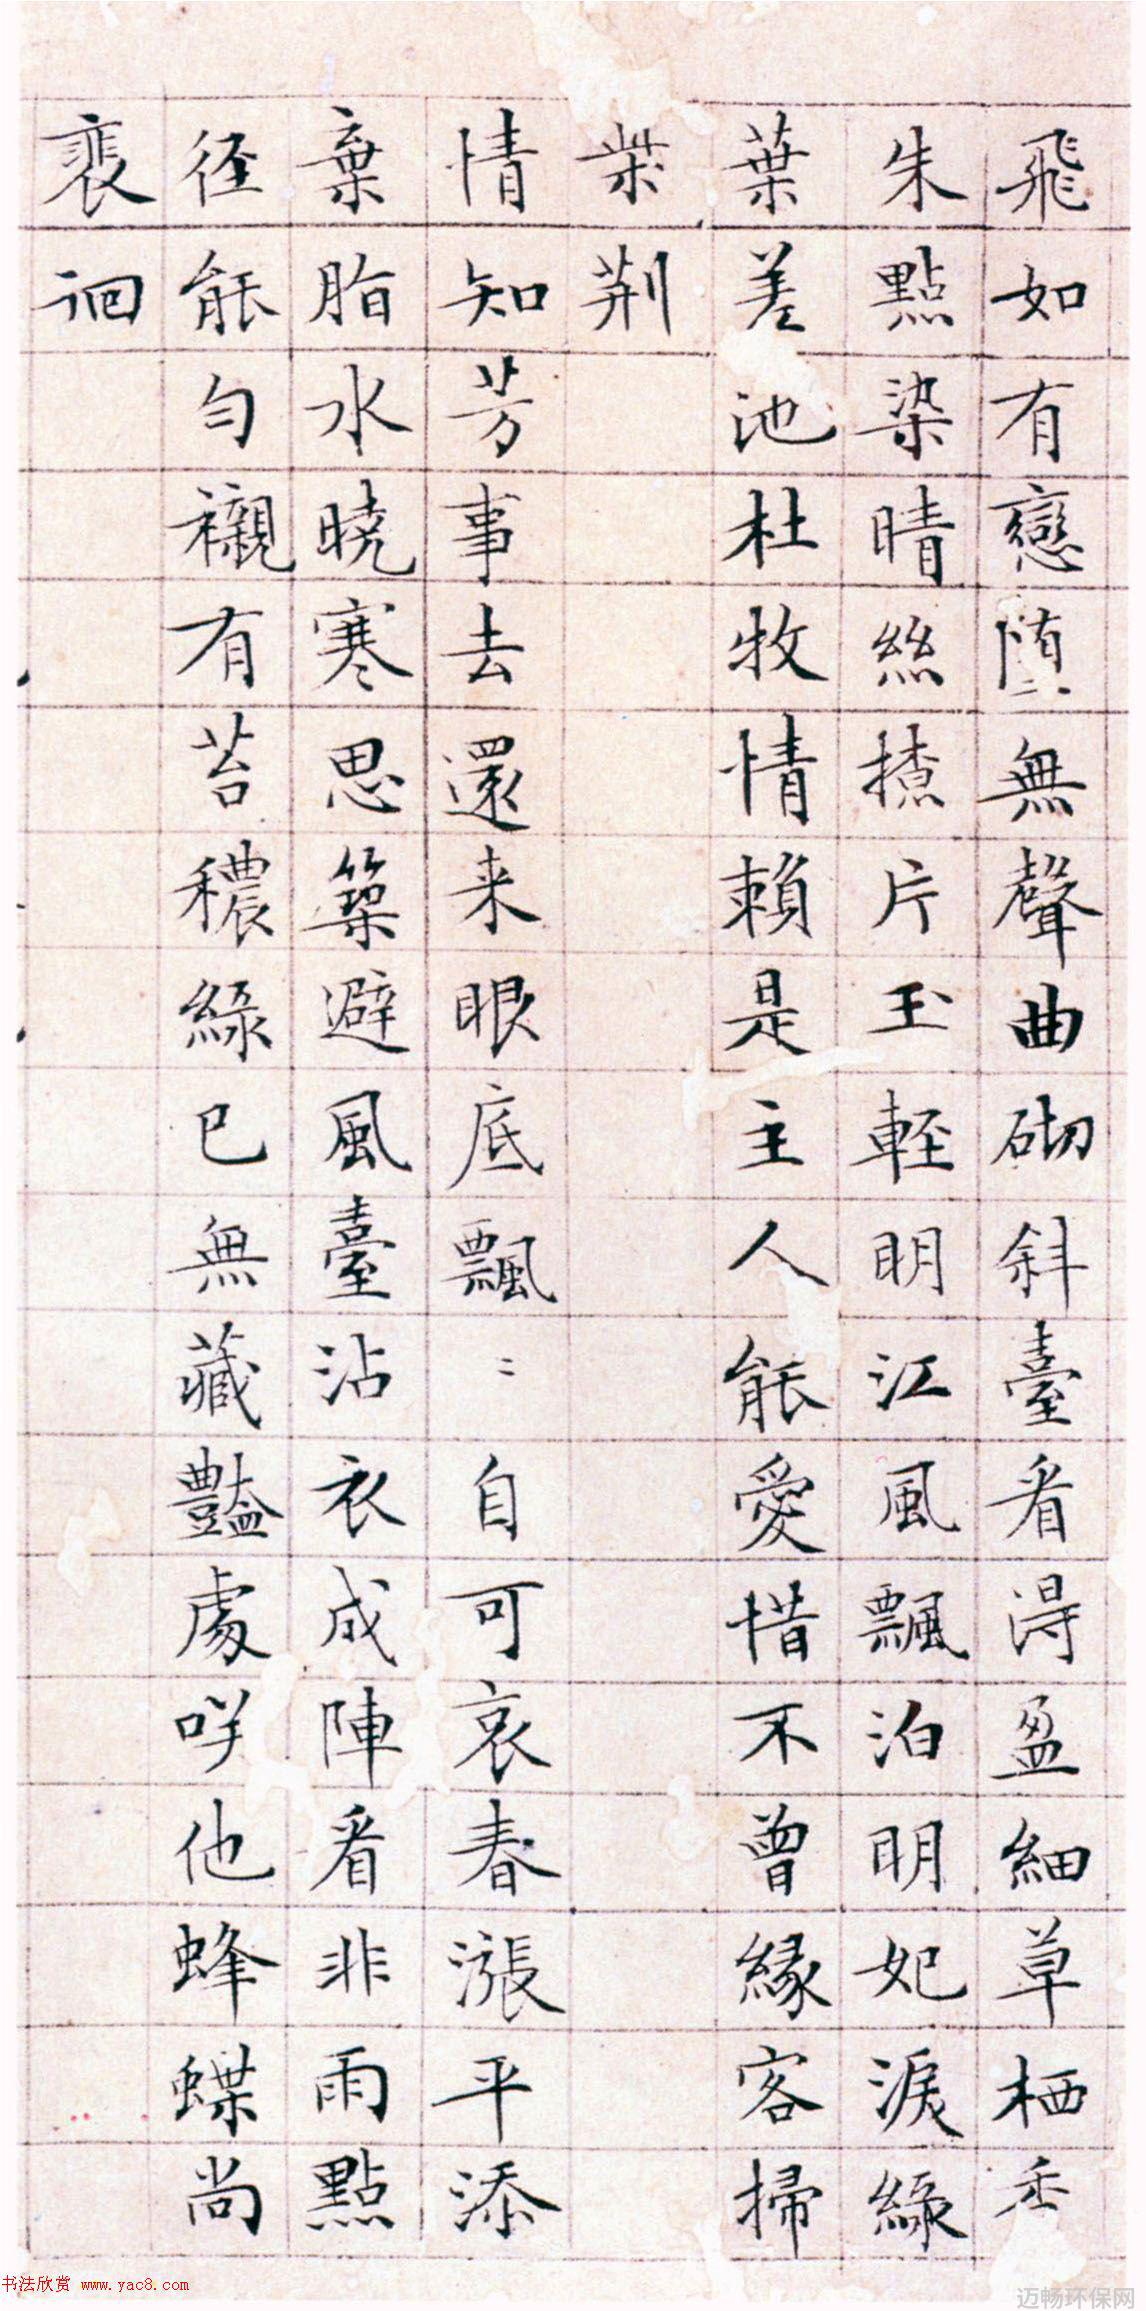 飛如有戀堕無聲曲砌斜臺看淂盈細草栖香
朱點染晴絲攃片玉輕明江風飄泊明妃淚綠
葉差池杜牧情賴是主人能愛惜不曾緣客掃
柴荆
情知芳事去還来眼底飄〻自可哀春漲平添
棄脂水曉寒思築避風臺沾衣成陣看非雨點
径能勻襯有苔穠綠已無藏豔處咲他蜂蝶尚
裵徊
书法欣赏 www.yac8.com
迈畅环保网